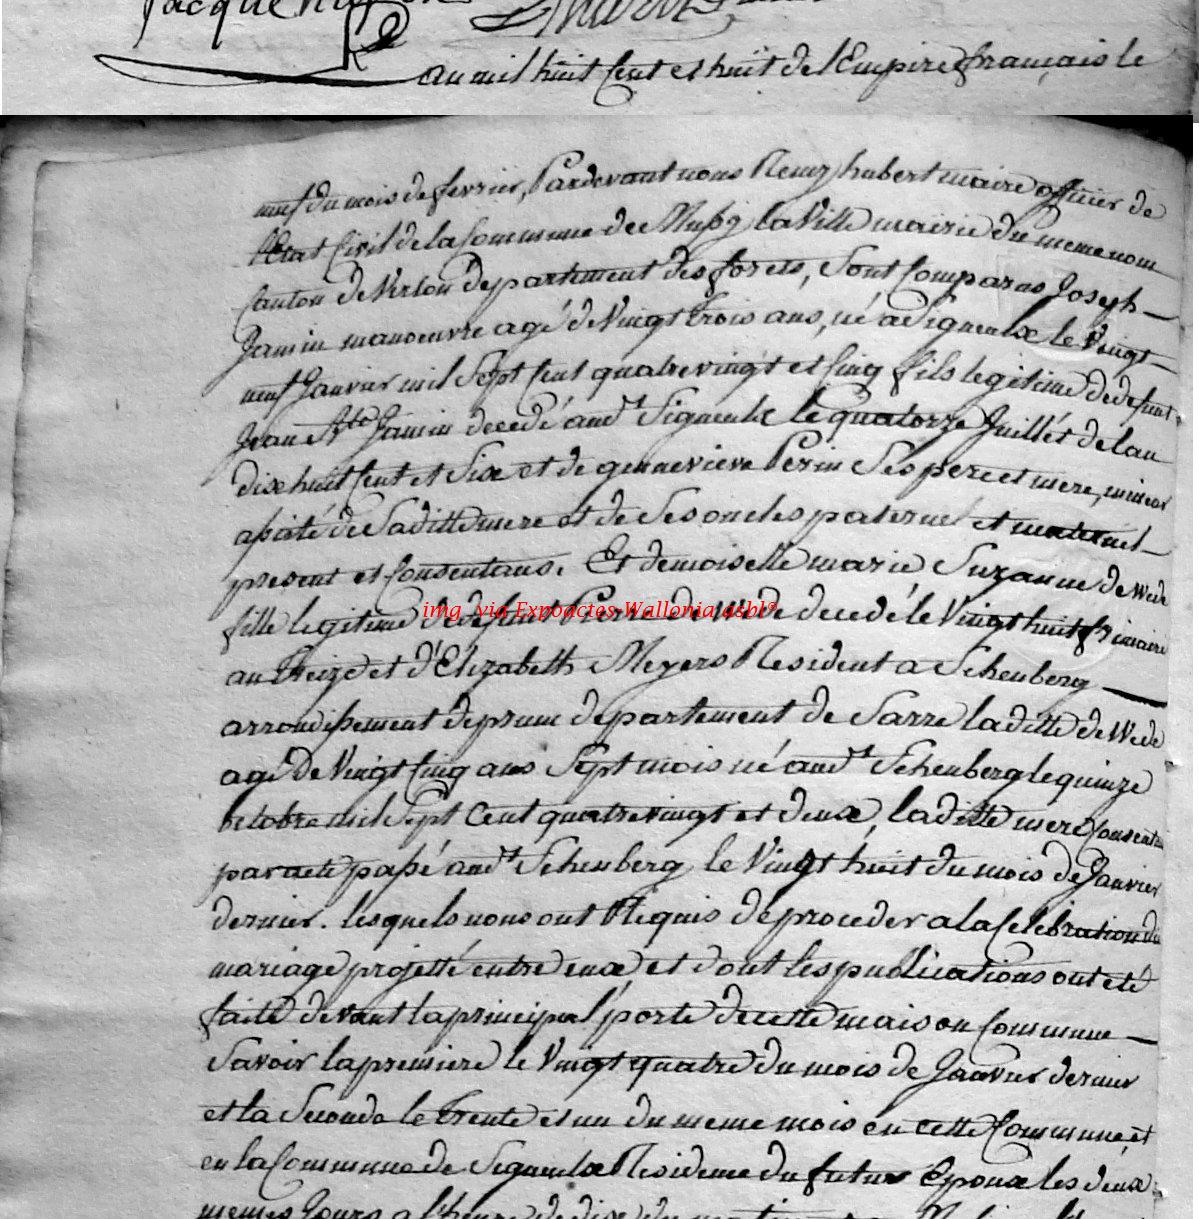 Jacque
an mil huit Cent et huit de l'Empire français le
neuf du mois de fevrier, Pardevant nous Remy hubert maire officier de
l'Etat Civil de la Commune de Mussy la Ville mairie du meme nom
Canton de Virton departement des forets, Sont Comparus Joseph
Jamin manoeuvre agé de Vingt trois ans, né a Signeulx le Vingt
neuf Janvier mil Sept Cent quatrevingt et Cinq fils legitime de defunt
Jean Bte Jamin decedé aud.t Signeulx le quatorze Juillét de l'an
dixhuit Cent et Six et de genneviéve Perin Ses pere et mere, mineur
assisté de Sa ditte mere et de Ses oncles paternel et maternel
present et Consentans. Et demoiselle marie Suzanne de Wede
fille legitime de defunt Pierre de Wede decedé le Vingt huit frimaire
an treize et d'Elizabeth Meyers Resident a Schenberg
arrondissement de prum departement de Sarre la ditte de Wede
agé de Vingt Cinq ans Sept mois né aud.t Schenberg le quinze
octobre mil Sept Cent quatrevingt et deux, la ditte mere
par acte passé aud.t Schenberg le Vingt huit du mois de Janvier
dernier. lesquels nous ont Requis de proceder a la Celebration du
mariage projetté entre eux et dont les publications ont eté
faite devant la principal porte de cette maison Commune
Savoir la premiere le Vingt quatre du mois de Janvier dernier
et la Seconde le trente et un du meme mois en cette Commune et
en la Commune de Signeulx Residence du futur Epoux les deux
memes Jours a l'heure de dix du matin
img via Expoactes-Wallonia asbl°